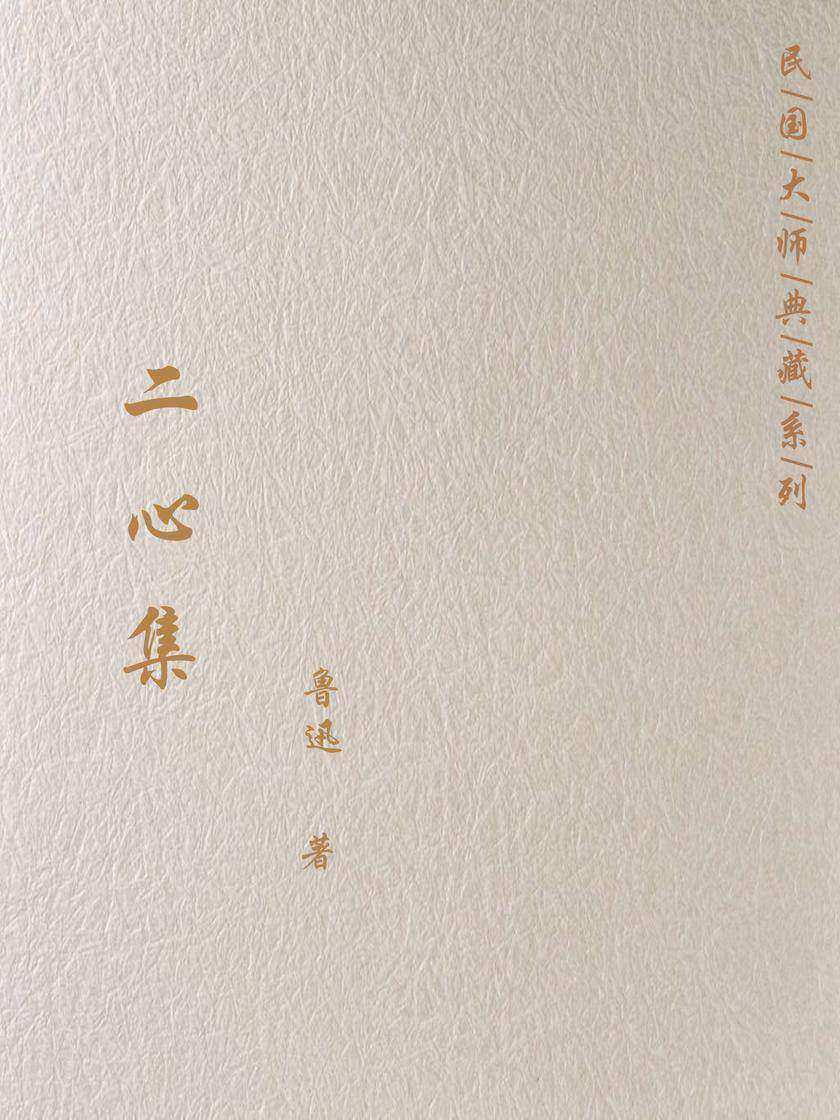 民/国/大/师/典/藏/系/列
二心集
鲁迅 著